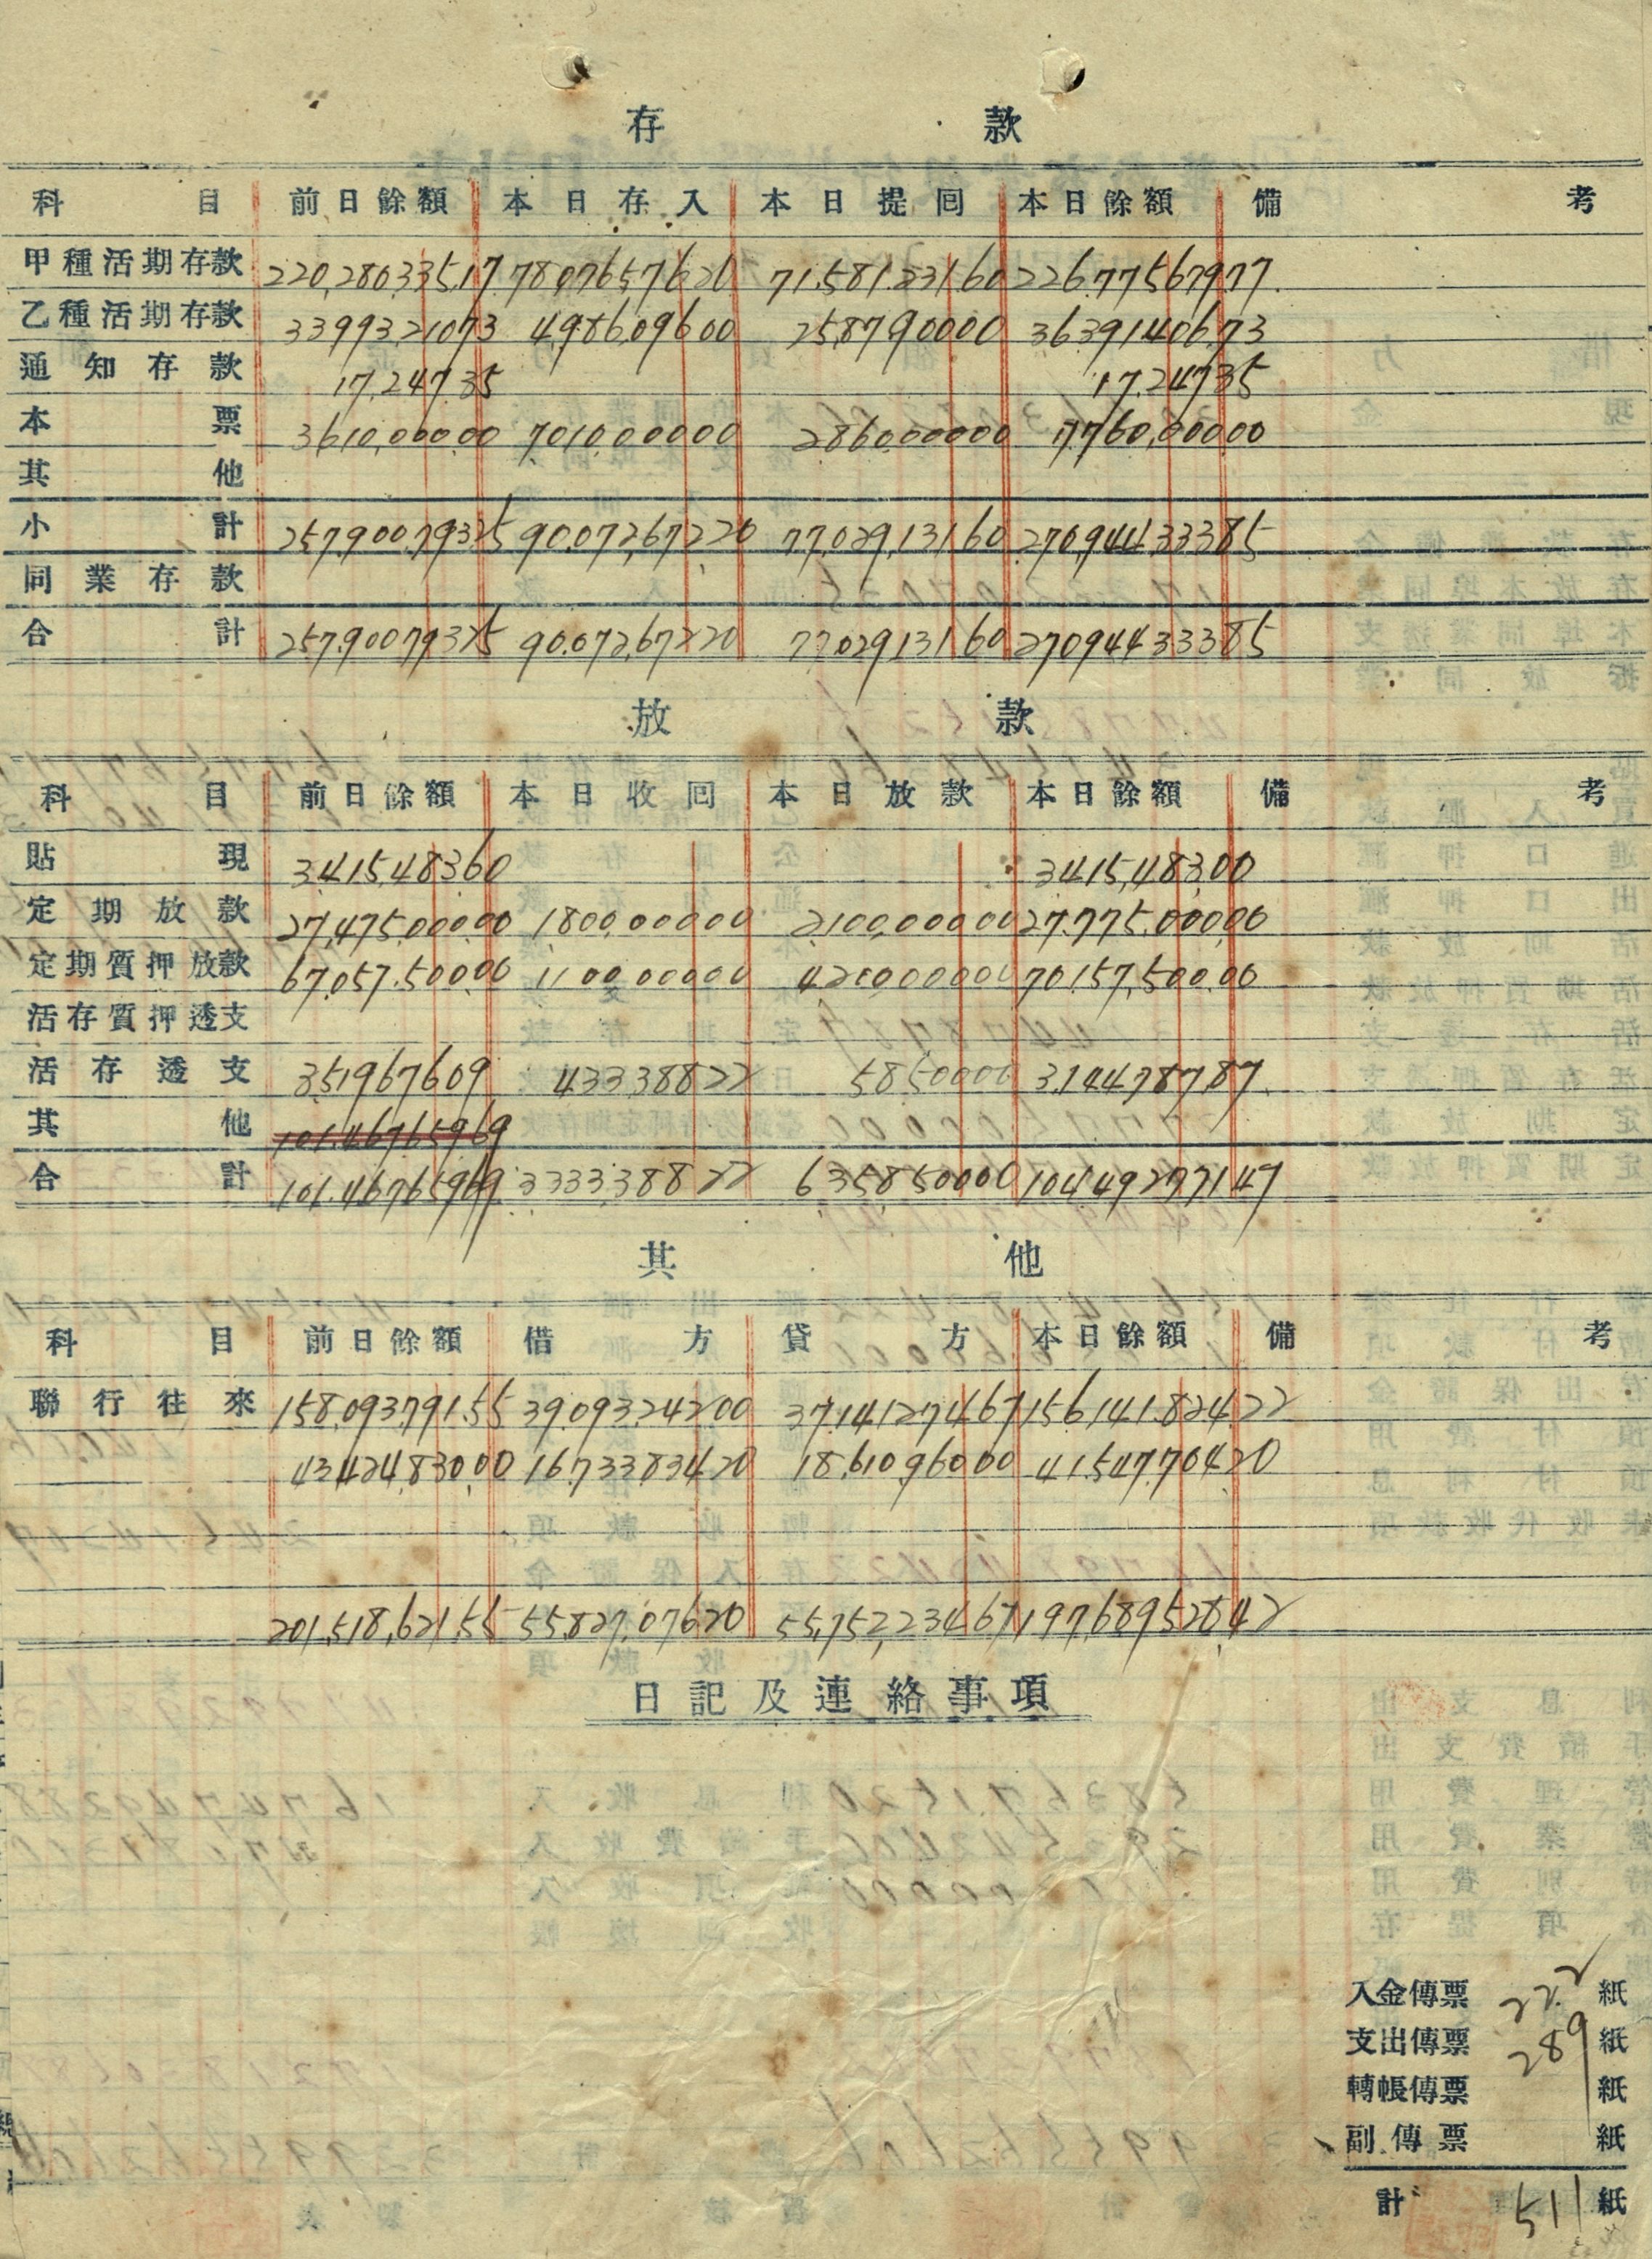 存款
科目 前日餘額 本日存入 本日提回 本日餘額 備考
甲種活期存款 220,280,335.17 78,076,576.20 71,581,231.60 226,775,679.77
乙種活期存款 33,993,210.73 4,986,096.00 2,587,900.00 36,391,406.73
通知存款 17,247.35 17,247.35
本票 3,610,000.00 7,010,000.00 2,860,000.00 7,760,000.00
其他
小計 257,900,793.25 90,072,672.20 77,029,131.60 270,944,333.85
同業存款
合計 257,900,793.25 90,072,672.20 77,029,131.60 270,944,333.85
放款
科目 前日餘額 本日收回 本日放款 本日餘額 備考
貼現 3,415,483.60 3,415,483.00
定期放款 27,475,000.00 1,800,000.00 2,100,000.00 27,775,000.00
定期質押放款 67,057,500.00 1,100,000.00 4,200,000.00 70,157,500.00
活存質押透支
活存透支 3,519,676.09 433,388.22 58,500.00 3,144,787.87
其他 101,467,659.69
合計 101,467,659.69 3,333,388.22 6,358,500.00 104,492,771.47
其他
科目 前日餘額 借方 貸方 本日餘額 備考
聯行往來 158,093,791.55 39,093,242.00 37,141,274.67 156,141,824.22
43,424,830.00 16,733,834.20 18,610,960.00 41,547,704.20
201,518,621.55 55,827,076.20 55,752,234.67 197,689,528.42
日記及連絡事項
入金傳票 222 紙
支出傳票 289 紙
轉帳傳票 紙
副傳票 紙
計 511 紙